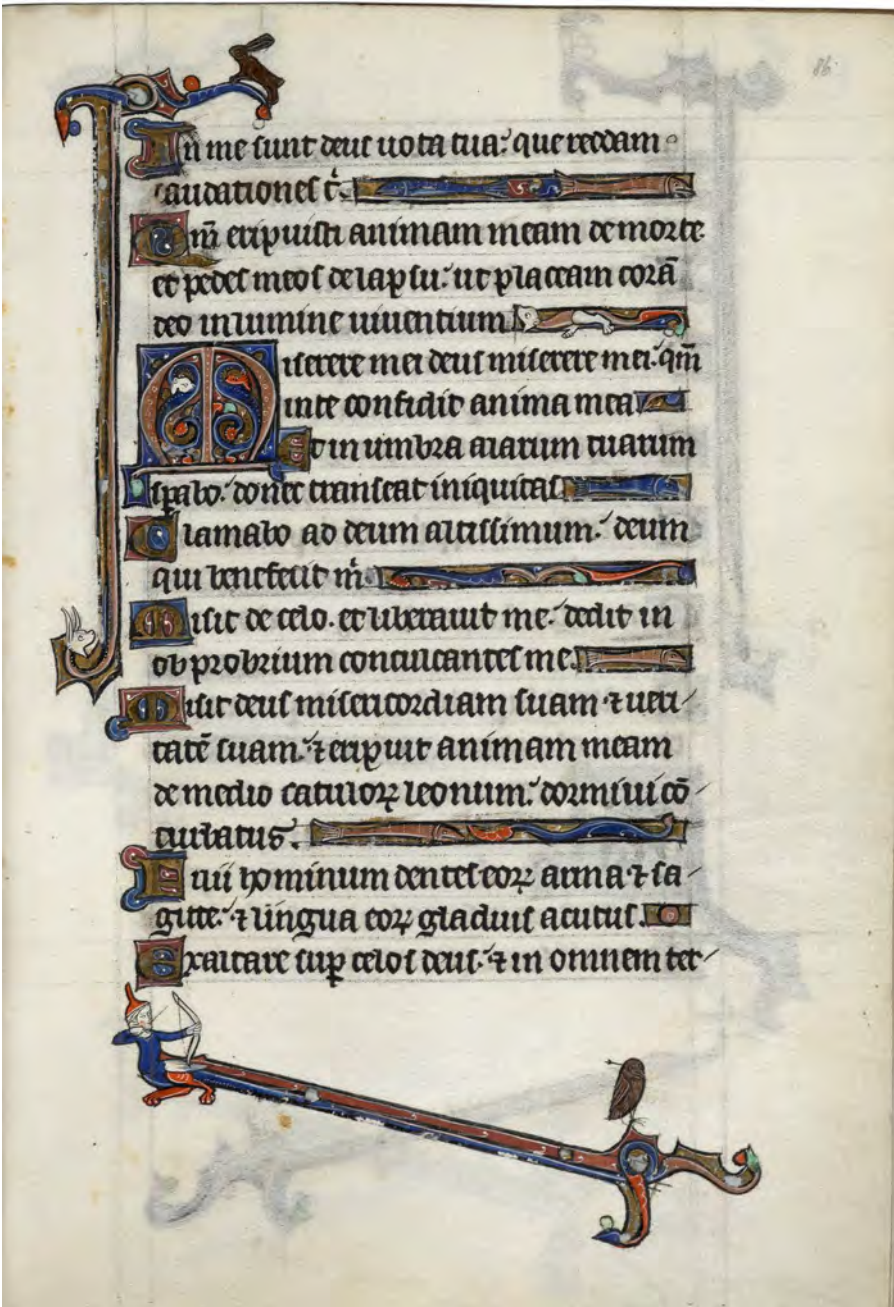 86
In me sunt deus uota tua: que reddam
laudationes t̾.
Qm̄ eripuisti animam meam de morte
et pedes meos de lapsu: ut placeam corā
deo in lumine uiuentium
Miserere mei deus miserere mei: qm̄
in te confidit anima mea
Et in umbra alarum tuarum
sp̄abo: donec transeat iniquitas
Clamabo ad deum altissimum: deum
qui benefecit m̾.
Misit de celo. et liberauit me: dedit in
obprobrium conculcantes me.
Misit deus misericordiam suam ⁊ ueri/
tatē suam: ⁊ eripuit animam meam
de medio catuloꝝ leonum: dormiui cō/
turbatus.
Filii hominum dentes eoꝝ arma ⁊ sa/
gitte: ⁊ lingua eoꝝ gladius acutus.
Exaltare sup̱ celos deus: ⁊ in omnem ter/